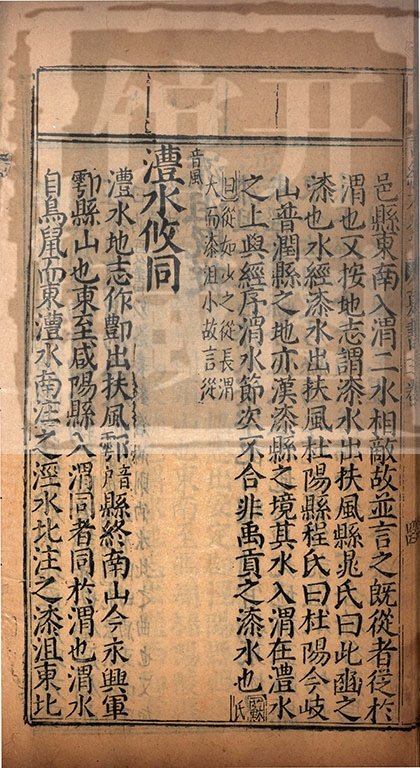 邑縣東南入渭二水相敵故並言之既從者從於
渭也又按地志謂漆水出扶風縣晁氏曰此豳之
漆也水經漆水出扶風杜陽縣程氏曰杜陽今岐
山普潤縣之地亦漢漆縣之境其水入渭在灃水
之上與經序渭水節次不合非禹貢之漆水也
氏
曰從如少之從長渭
大而漆沮小故言從
音風
灃水攸同
灃水地志作酆出扶風鄠音戶縣終南山今永興軍
鄠縣山也東至咸陽縣入渭同者同於渭也渭水
自鳥鼠而東灃水南注之涇水北注之漆沮東北